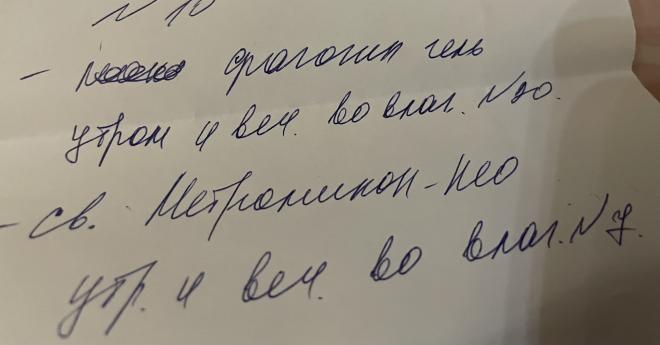 N 10
- фагогин гель
утром и веч. во влаг. N20.
- св. Метромикон-нео
утр. и веч. во влаг. N7.